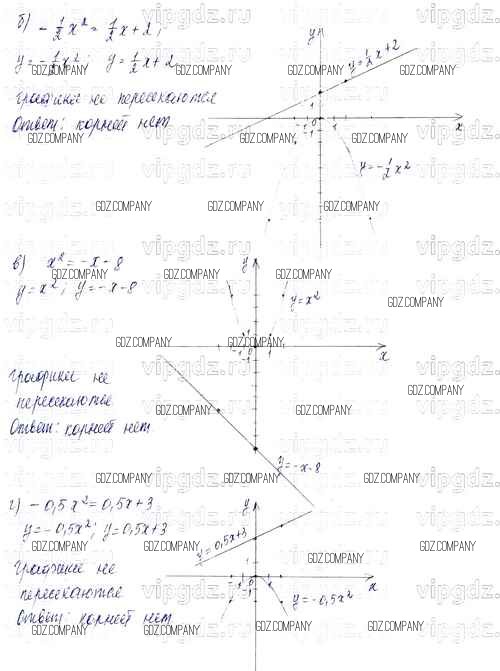 б) -1/2 x² = 1/2 x + 2;
y = -1/2 x²; y = 1/2 x + 2
графики не пересекаются
Ответ: корней нет.
y
y = 1/2 x + 2
x
y = -1/2 x²
в) x² = -x - 8
y = x²; y = -x - 8
графики не
пересекаются
Ответ: корней нет.
y
y = x²
x
y = -x - 8
г) -0,5x² = 0,5x + 3
y = -0,5x²; y = 0,5x + 3
Графики не
пересекаются
Ответ: корней нет
y
y = 0,5x + 3
x
y = -0,5x²
vipgdz.ru
GDZ.COMPANY